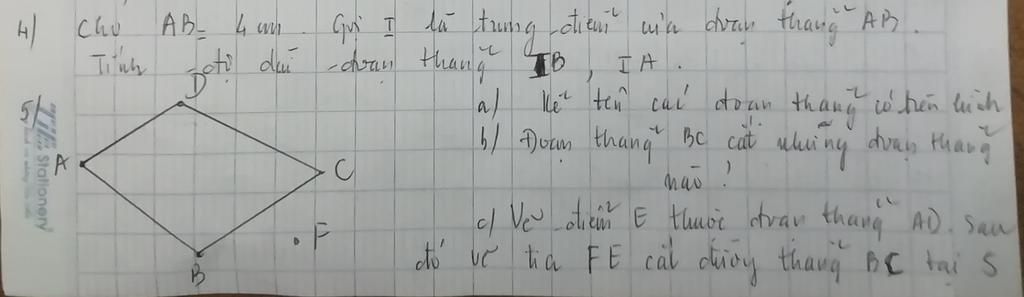 4) Cho AB = 4 cm. Gọi I là trung điểm của đoạn thẳng AB.
Tính độ dài đoạn thẳng IB, IA.
5)
D
A
C
B
F
a) Kể tên các đoạn thẳng có trên hình
b) Đoạn thẳng BC cắt những đoạn thẳng
nào?
c) Vẽ điểm E thuộc đoạn thẳng AD. Sau
đó vẽ tia FE cắt đường thẳng BC tại S
Stationery